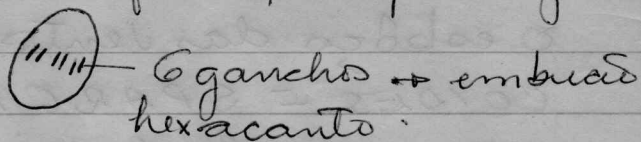 6 ganchos → embrião
hexacanto.